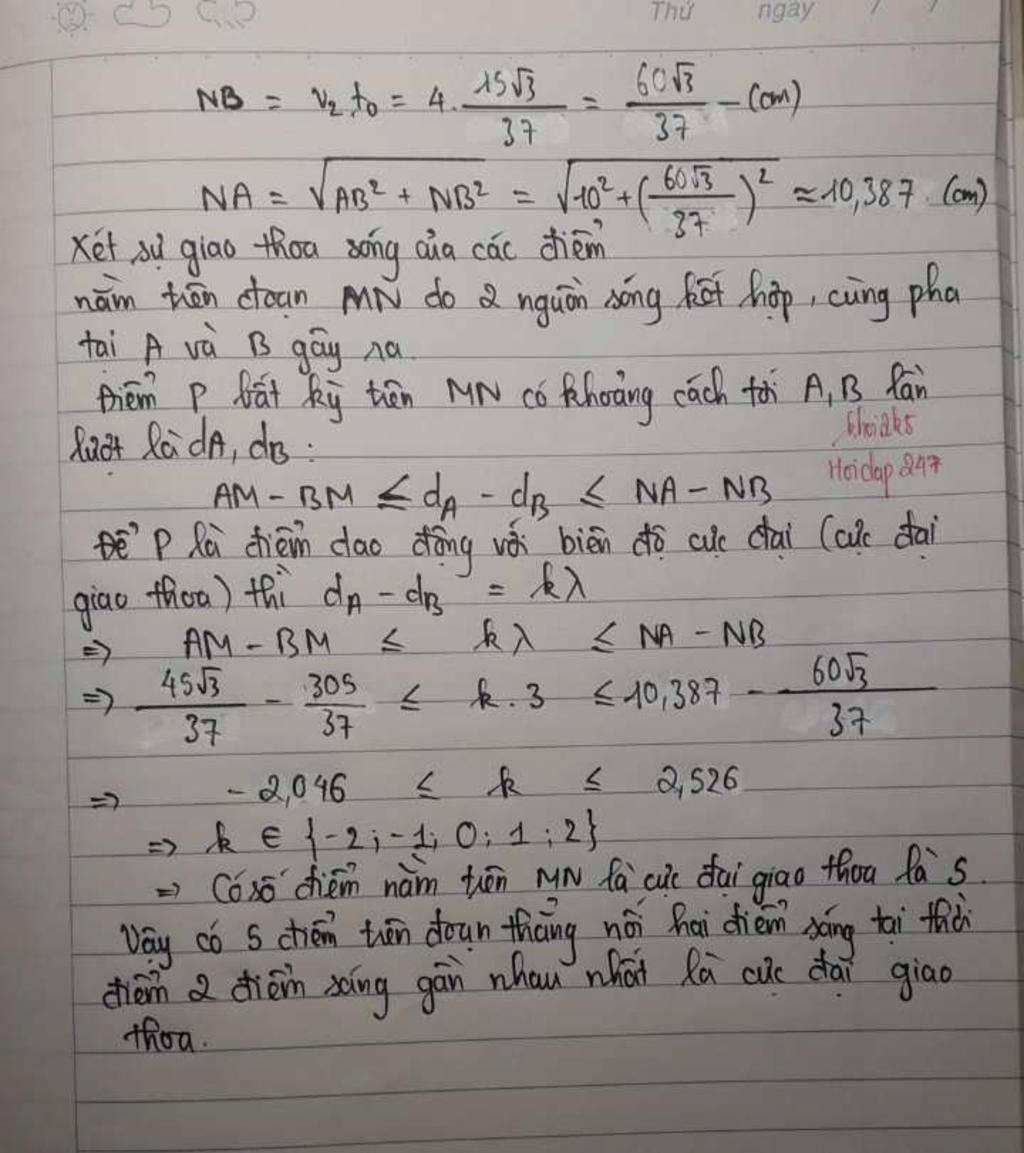 Thứ ngày / /
NB = v₂ t₀ = 4. 15√3/37 = 60√3/37 (cm)
NA = √(AB² + NB²) = √(10² + (60√3/37)²) ≈ 10,387 (cm)
Xét sự giao thoa sóng của các điểm
nằm trên đoạn MN do 2 nguồn sóng kết hợp, cùng pha
tại A và B gây ra.
Điểm P bất kỳ trên MN có khoảng cách tới A, B lần
lượt là dA, dB :
khoi2k5
Hoidap247
AM - BM ≤ dA - dB ≤ NA - NB
Để P là điểm dao động với biên độ cực đại (cực đại
giao thoa) thì dA - dB = kλ
=> AM - BM ≤ kλ ≤ NA - NB
=> 45√3/37 - 305/37 ≤ k.3 ≤ 10,387 - 60√3/37
=> -2,046 ≤ k ≤ 2,526
=> k ∈ {-2; -1; 0; 1; 2}
=> Có số điểm nằm trên MN là cực đại giao thoa là 5.
Vậy có 5 điểm trên đoạn thẳng nối hai điểm sáng tại thời
điểm 2 điểm sáng gần nhau nhất là cực đại giao
thoa.